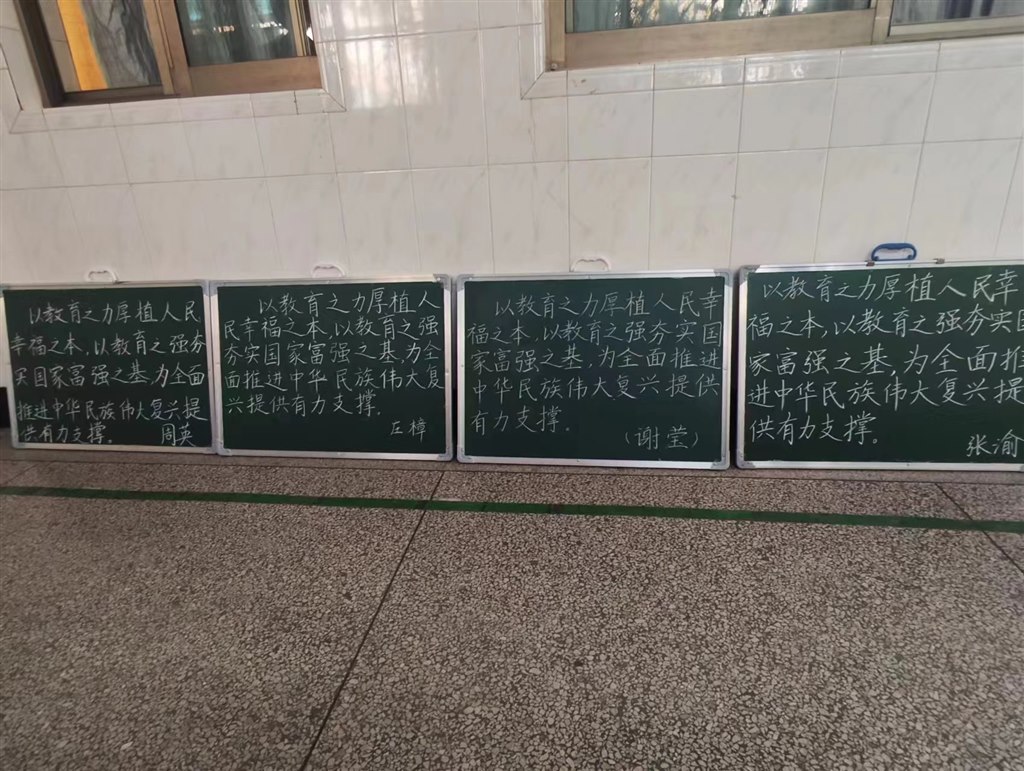 以教育之力厚植人民
幸福之本,以教育之强夯
实国家富强之基,为全面
推进中华民族伟大复兴提
供有力支撑。 周英
以教育之力厚植人
民幸福之本,以教育之强
夯实国家富强之基,为全
面推进中华民族伟大复
兴提供有力支撑。
樟
以教育之力厚植人民幸
福之本,以教育之强夯实国
家富强之基,为全面推进
中华民族伟大复兴提供
有力支撑。
(谢莹)
以教育之力厚植人民幸
福之本,以教育之强夯实国
家富强之基,为全面推
进中华民族伟大复兴提
供有力支撑。
张渝